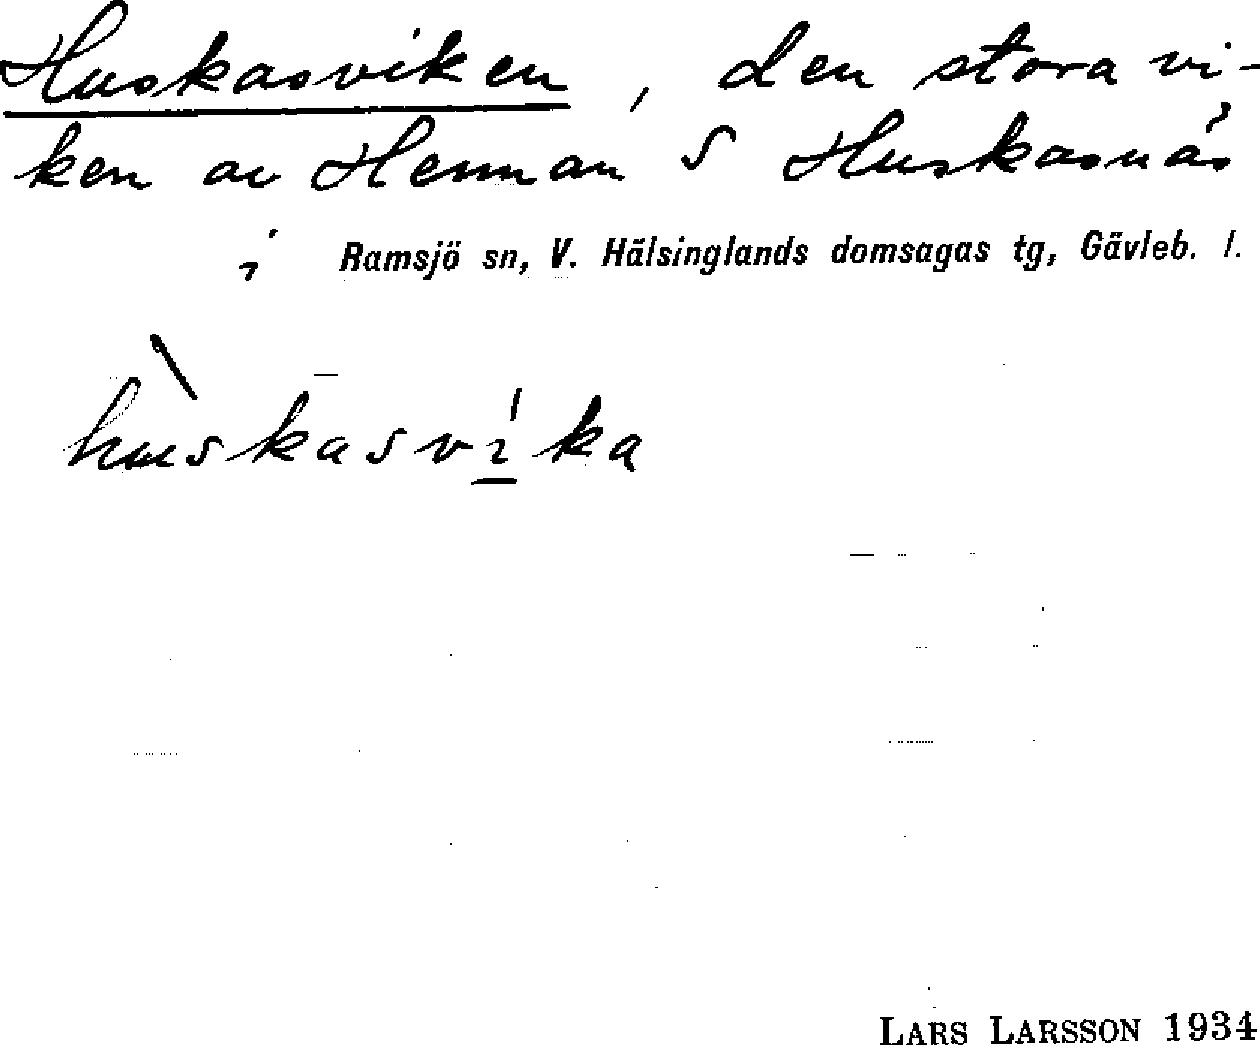 Huskasviken, den stora vi-
ken av Hennan S Huskasnäs
i Ramsjö sn, V. Hälsinglands domsagas tg, Gävleb. l.
hùskasvı̱́ka
LARS LARSSON 1934